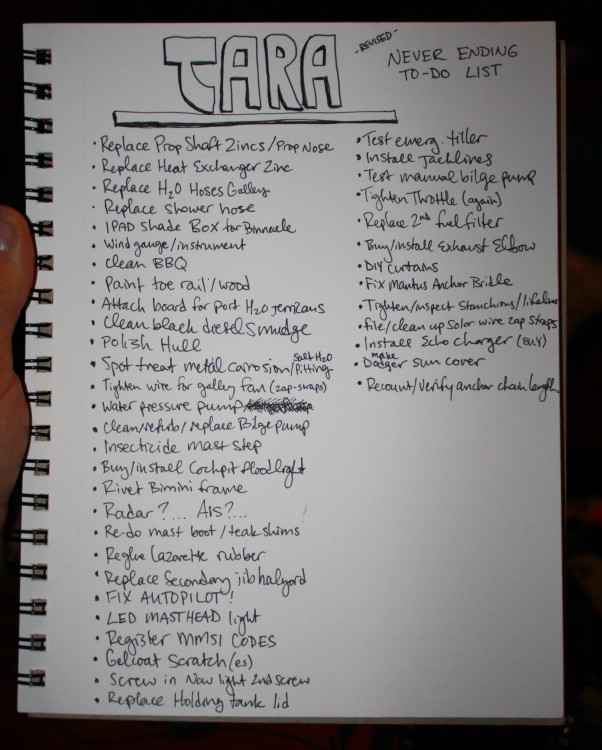 TARA
-REVISED-
NEVER ENDING
TO-DO LIST
• Replace Prop Shaft Zincs/Prop Nose
• Replace Heat Exchanger Zinc
• Replace H2O Hoses Galley
• Replace shower hose
• IPAD shade Box for Binnacle
• Wind gauge/instrument
• Clean BBQ
• Paint toe rail/wood
• Attach board for port H2O jerricans
• Clean black diesel smudge
• Polish Hull
• Spot treat metal corrosion/salt H2O Pitting
• Tighten wire for galley fan (zap-straps)
• Water pressure pump
• Clean/refurb/replace Bilge pump
• Insecticide mast step
• Buy/install Cockpit floodlight
• Rivet Bimini frame
• Radar?... AIS?...
• Re-do mast boot/teak shims
• Reglue Lazarette rubber
• Replace Secondary jib halyard
• FIX AUTOPILOT!
• LED MASTHEAD light
• Register MMSI CODES
• Gelcoat Scratch(es)
• Screw in Nav light 2nd screw
• Replace Holding tank lid
• Test emerg. tiller
• Install Jacklines
• Test manual bilge pump
• Tighten Throttle (again)
• Replace 2nd fuel filter
• Buy/install Exhaust Elbow
• DIY curtains
• Fix Mantus Anchor Bridle
• Tighten/inspect Stanchions/lifelines
• File/clean up Solar wire zap straps
• Install Scho charger (BUY)
• make Dodger sun cover
• Recount/Verify anchor chain length